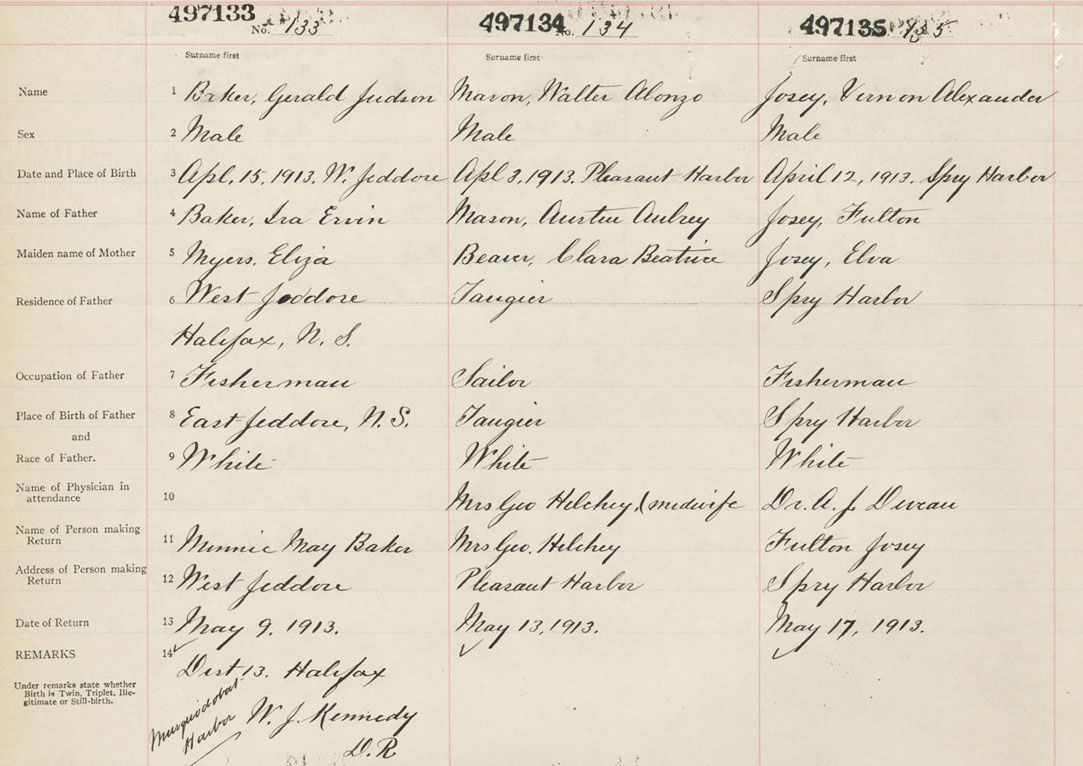 497133 497134 497135
No. 133 No. 134 135
Surname first Surname first Surname first
Name 1 Baker, Gerald Judson Mason, Walter Alonzo Josey, Vernon Alexander
Sex 2 Male Male Male
Date and Place of Birth 3 Apl. 15, 1913. W. Jeddore Apl 3, 1913. Pleasant Harbor April 12, 1913. Spry Harbor
Name of Father 4 Baker, Ira Ervin Mason, Aubrey Josey, Fulton
Maiden name of Mother 5 Myers, Eliza Beaver, Clara Beatrice Josey, Elva
Residence of Father 6 West Jeddore Tangier Spry Harbor
Halifax, N. S.
Occupation of Father 7 Fisherman Sailor Fisherman
Place of Birth of Father 8 East Jeddore, N. S. Tangier Spry Harbor
and
Race of Father. 9 White White White
Name of Physician in
attendance 10 Mrs Geo Hilchey, (midwife Dr. A. J.
Name of Person making
Return 11 Minnie May Baker Mrs Geo. Hilchey Fulton Josey
Address of Person making
Return 12 West Jeddore Pleasant Harbor Spry Harbor
Date of Return 13 May 9. 1913. May 13, 1913. May 17, 1913.
REMARKS 14
Dist 13. Halifax
Under remarks state whether
Birth is Twin, Triplet, Ille-
gitimate or Still-birth.
Musquodobot
Harbor
W. J. Kennedy
D. R